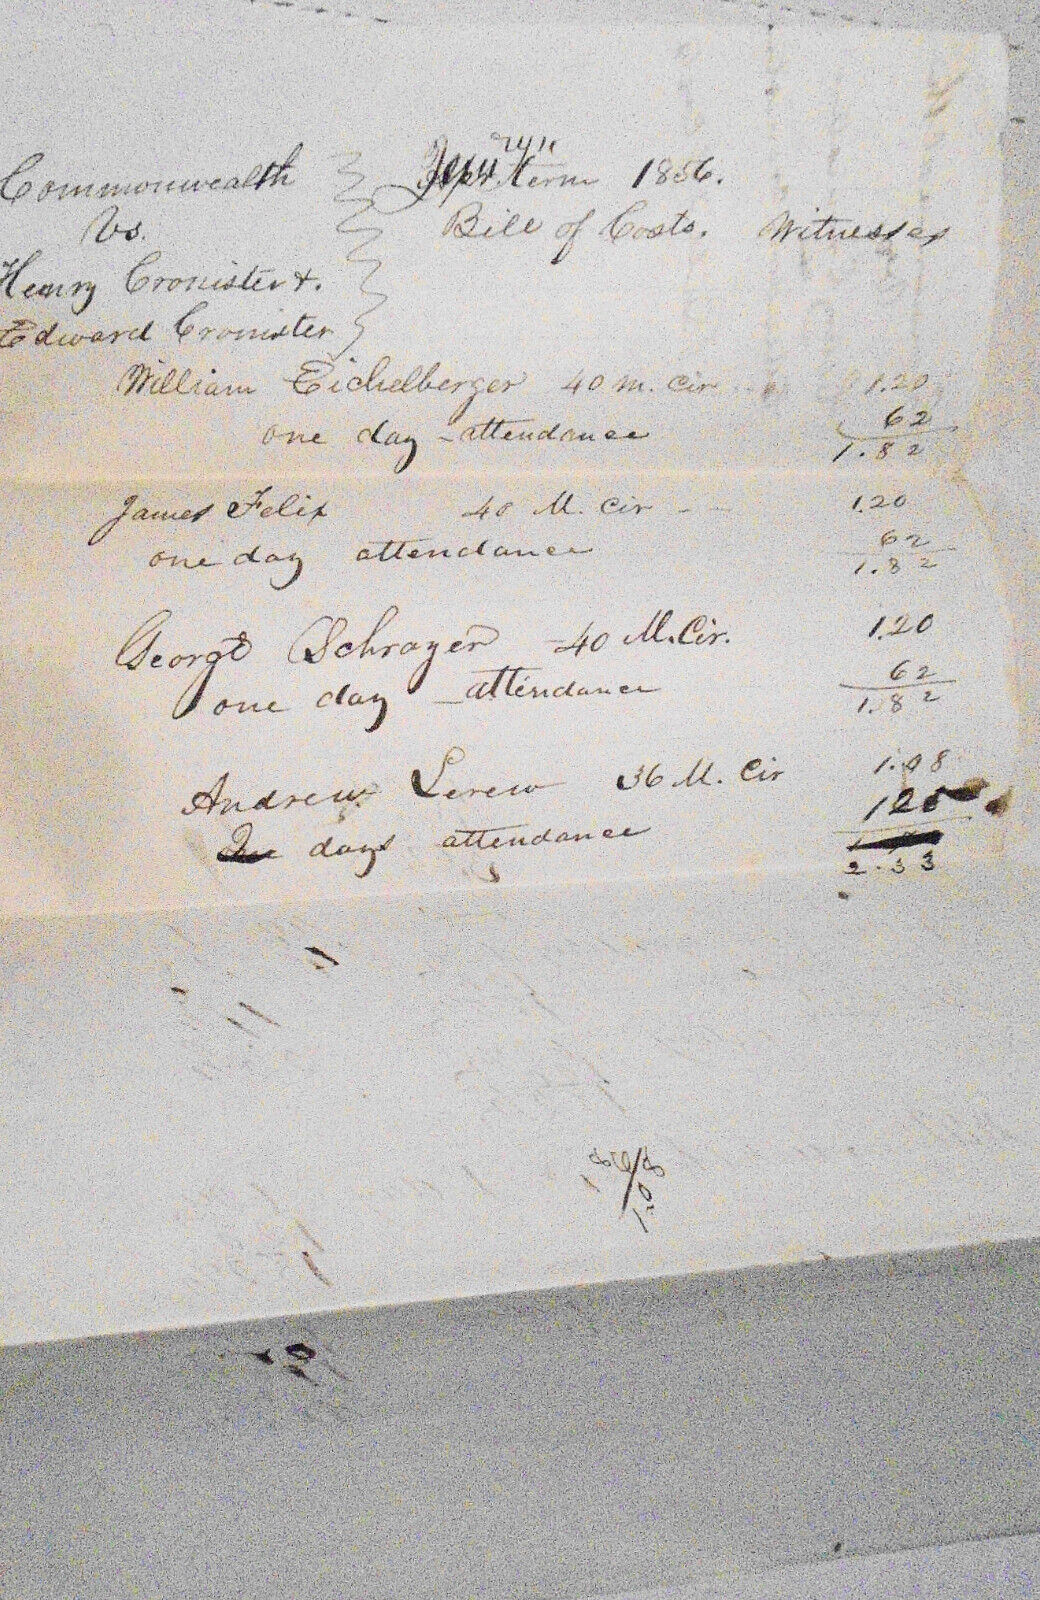 Commonwealth Term 1856.
Vs. Bill of Costs. Witnesses
Henry Cronister &.
Edward Cronister
William Eichelberger 40 m. Cir 1.20
one day attendance 62
1.82
James Felix 40 M. Cir 1.20
one day attendance 62
1.82
George Schrayer 40 M. Cir. 1.20
one day attendance 62
1.82
Andrew Lerew 36 M. Cir 1.08
days attendance 125
2.33